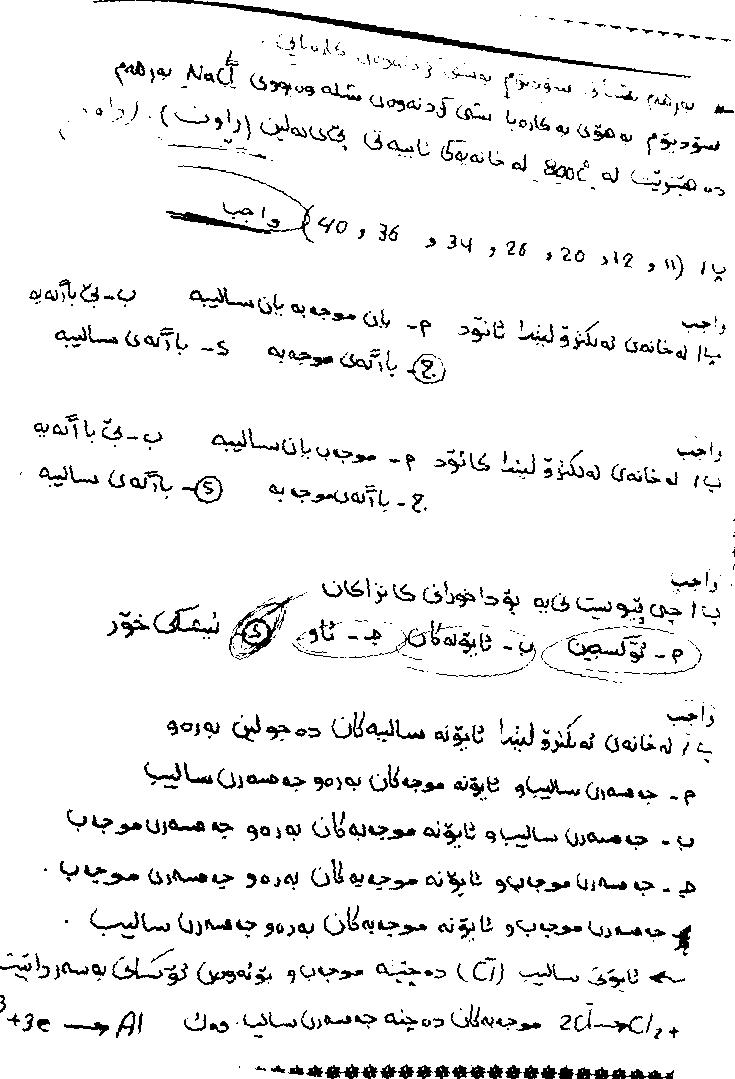 - بەرهەم هێنانی سۆدیۆم بەشی کردنەوەی کارەبایی.
سۆدیۆم بە هۆی بە کارەبا شی کردنەوەی شلە وەبووی NaCl بەرهەم
دەهێنرێت لە 800C° لە خانەیەکی تایبەتی پێی دەلێن (داونز).
پ/ (11 ، 12 ، 20 ، 26 ، 34 ، 36 ، 40) واجب
واجب
پ/ لە خانەی ئەلکترۆلیتدا ئانۆد م- یان موجەبە یان سالیبە ب- بێ بارگەیە
ج- بارگەی موجەبە د- بارگەی سالیبە
واجب
پ/ لە خانەی ئەلکترۆلیتدا کاثۆد م- موجەب یان سالیبە ب- بێ بارگەیە
ج- بارگەی موجەبە د- بارگەی سالیبە
واجب
پ/ چی پێویست نی یە بۆ داخورانی کانزاکان
م- ئۆکسجین ب- ئایۆنەکان ج- ئاو د- تیشکی خۆر
واجب
پ/ لە خانەی ئەلکترۆلیتدا ئایۆنە سالیبەکان دەجولێن بەرەو
م- جەمسەری سالیب و ئایۆنە موجەبەکان بەرەو جەمسەری سالیب
ب- جەمسەری سالیب و ئایۆنە موجەبەکان بەرەو جەمسەری موجەب
ج- جەمسەری موجەب و ئایۆنە موجەبەکان بەرەو جەمسەری موجەب.
د- جەمسەری موجەب و ئایۆنە موجەبەکان بەرەو جەمسەری سالیب.
ئایۆنی سالیب (Cl⁻) دەچێتە موجەب و بۆئەوەی ئۆکسانی بەسەردا بێت
2Cl⁻→Cl₂+ موجەبەکان دەچنە جەمسەری سالیب وەک 3+3e → Al